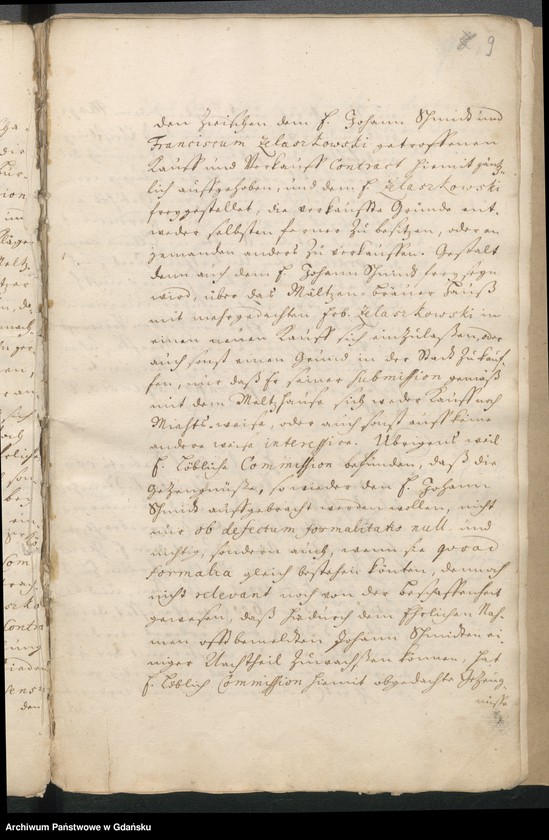 9
den zwischen dem H. Johann Schmidt und
Franciscum Zelaszkowski getroffenen
Kauff und Verkauff Contract hiemit gäntz-
lich auffgehoben, und dem H Zelaszkowski
freygestellet, die verkauffte Gründe ent-
weder selbsten ferner zu besitzen, oder an
jemanden anders zu verkauffen. Gestalt
denn auch dem H Johann Schmidt
wird, über das Mältzen-Bräuer Hauß
mit mehrgedachten Zelaszkowski in
einen neuen Kauff sich einzulaßen, oder
auch sonst einen Grund in der Stadt zu kauf-
fen, nur daß Er seiner submission gemäß
mit dem Maltzhause sich weder Kauff noch
Miethsweise, oder auch sonst auff keine
andere weise interessire. Übrigens weil
E. Löbliche Commission befunden, daß die
Gezeugnüße, so wieder den H. Johann
Schmidt außgebracht werden wollen, nicht
nur ob defectum formalitatis null und
nichtig, sondern auch, wenn sie quoad
formalia gleich bestehen könten, dennoch
nicht relevant noch von der beschaffenheit
gewesen, daß hiedurch dem Ehrlichen Nah-
men offtbemeldten Johann Schmidten ei-
niger Nachtheil zuwachßen können, hat
E. Löbliche Commission hiemit obgedachte Gezeug-
nüsse
Archiwum Państwowe w Gdańsku